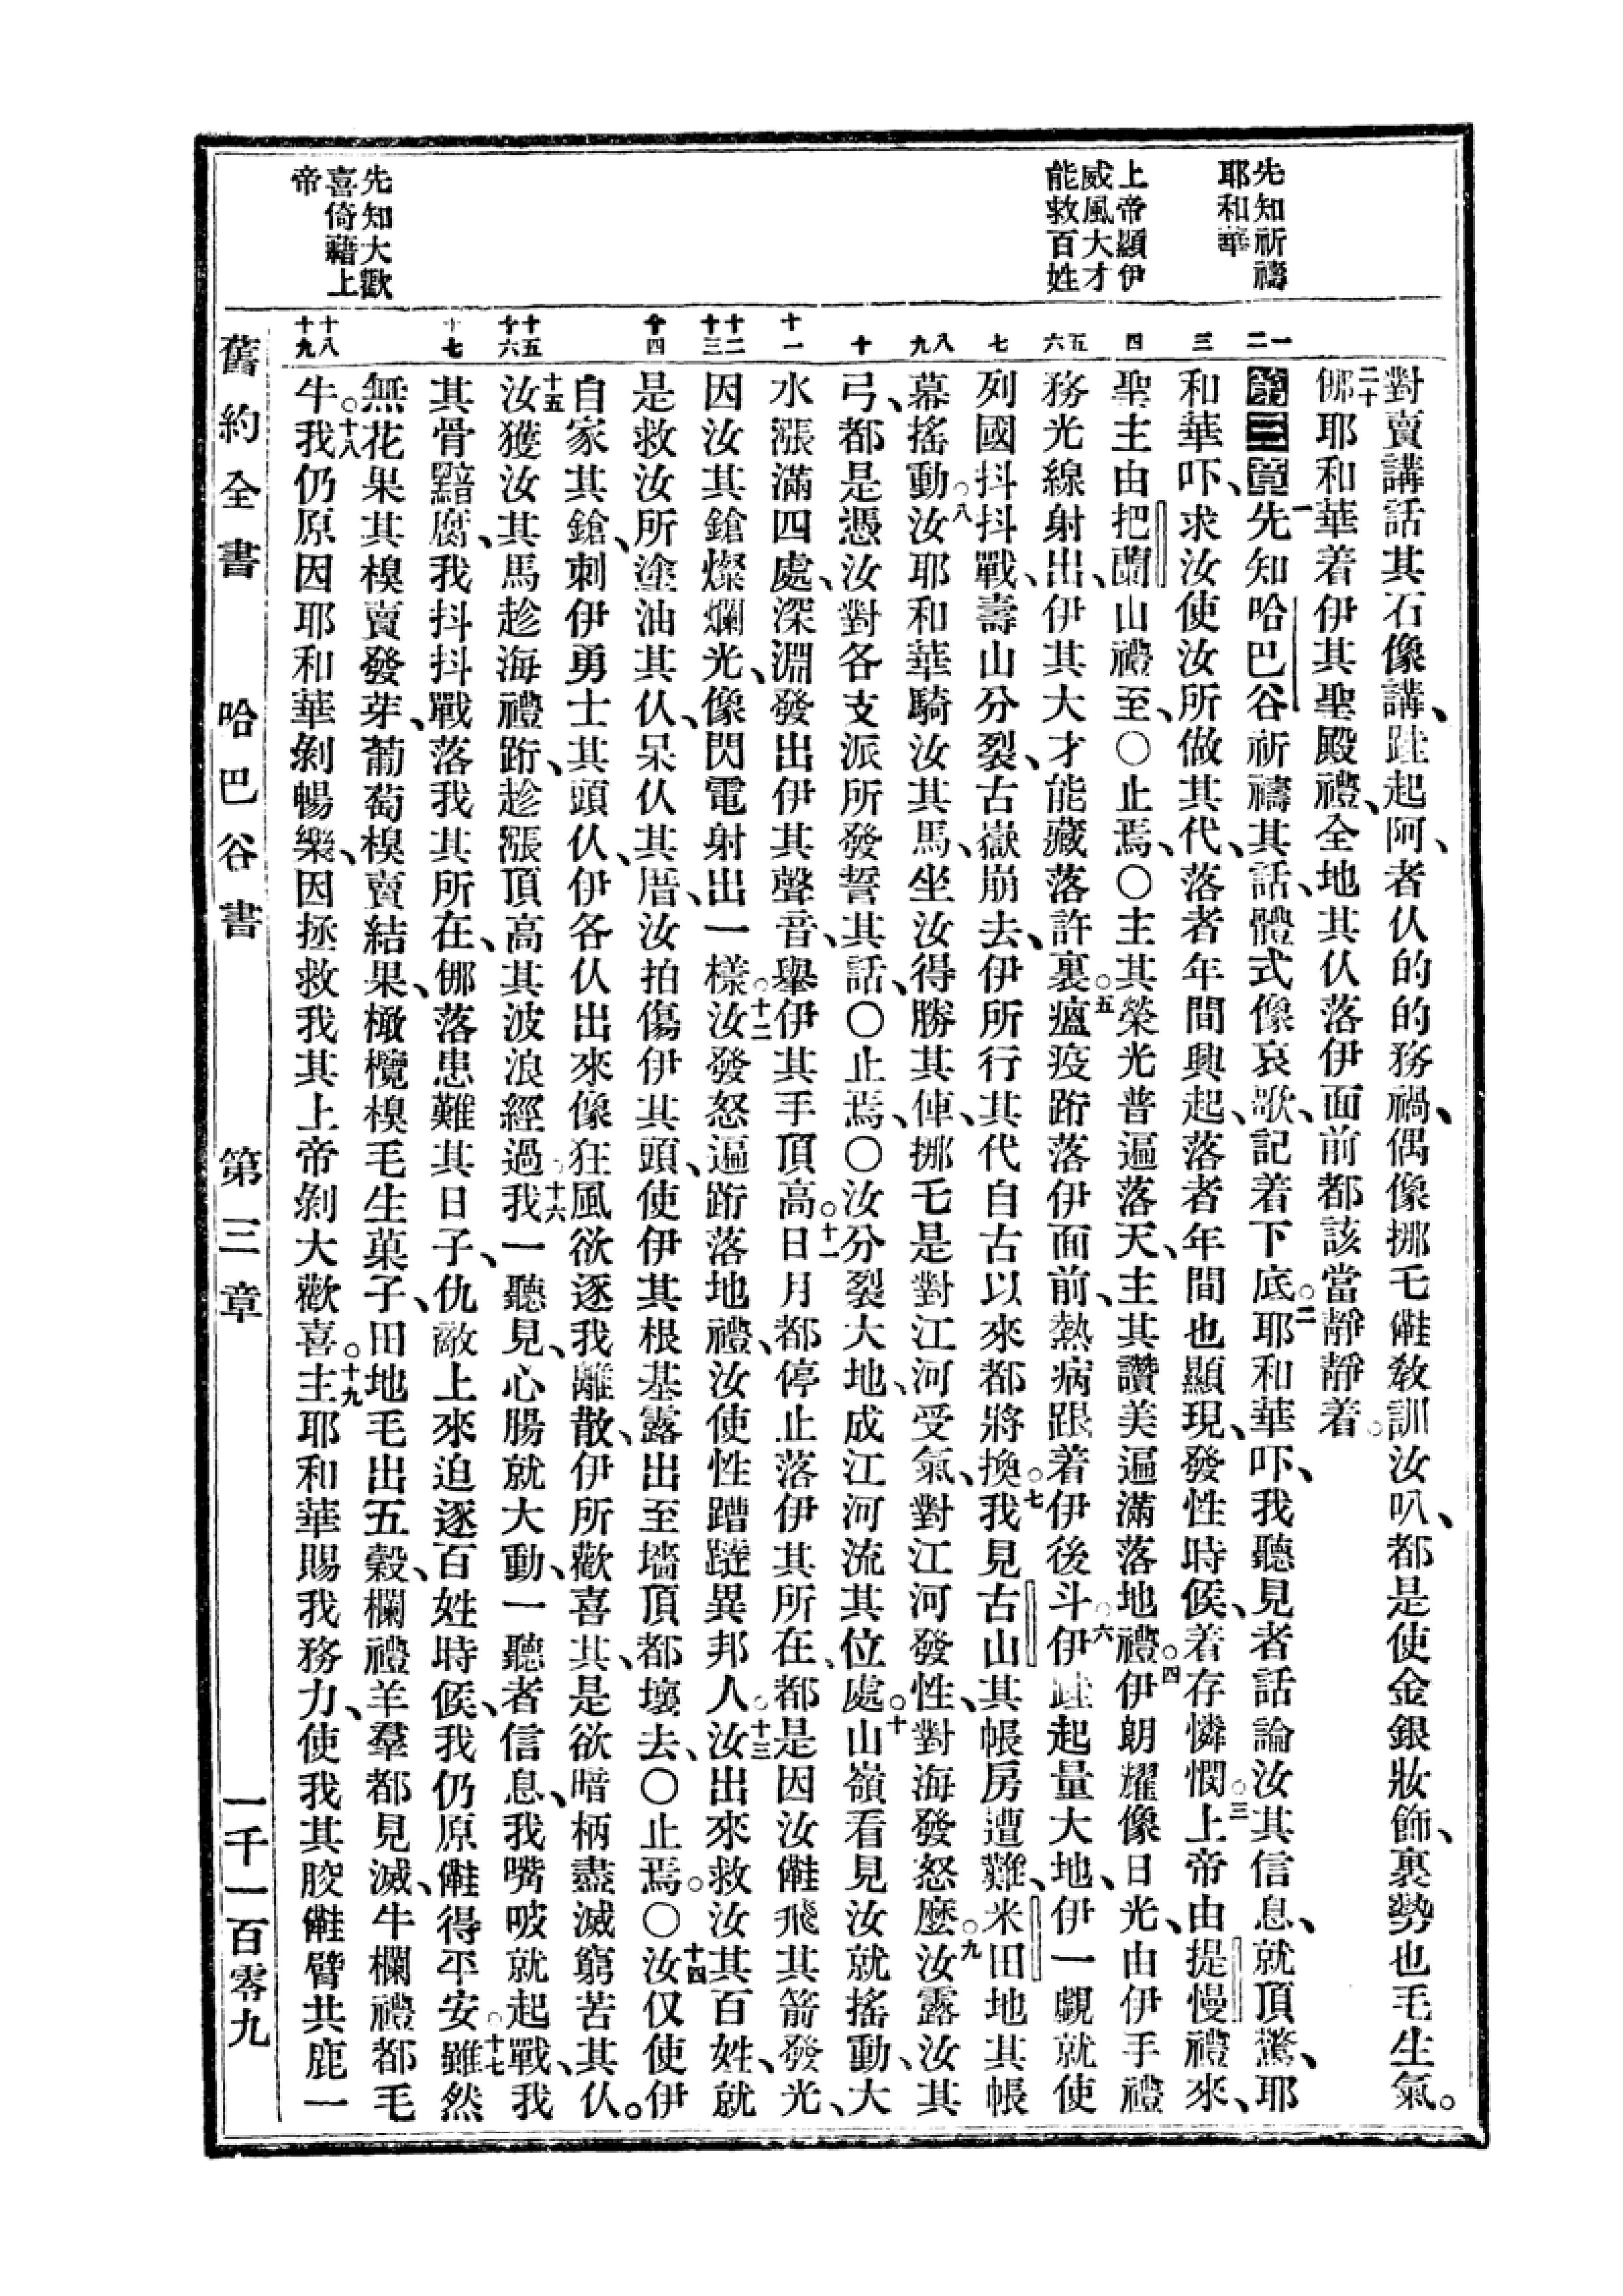 先知祈禱
耶和華
上帝顯伊
威風大才
能救百姓
先知大歡
喜倚藉上
帝
一
二
三
四
五
六
七
八
九
十
十一
十二
十三
十四
十五
十六
十七
十八
十九
對賣講話其石像講、跬起阿、者仈的的務禍、偶像挪乇㑽教訓汝叭、都是使金銀妝飾、裏勢也毛生氣。
二十
㑚耶和華着伊其聖殿禮、全地其仈落伊面前都該當靜靜着。
第三章一先知哈巴谷祈禱其話、體式像哀歌、記着下底。二耶和華吓、我聽見者話論汝其信息、就頂驚、耶
和華吓、求汝使汝所做其代、落者年間興起、落者年間也顯現、發性時候、着存憐憫。三上帝由提慢禮來、
聖主由把蘭山禮至、〇止焉、〇主其榮光普遍落天、主其讚美遍滿落地禮。四伊朗耀像日光、由伊手禮
務光線射出、伊其大才能藏落許裏。五瘟疫跸落伊面前、熱病跟着伊後斗。六伊跬起量大地、伊一覷就使
列國抖抖戰、壽山分裂、古嶽崩去、伊所行其代自古以來都將換。七我見古山其帳房遭難、米田地其帳
幕搖動。八汝耶和華騎汝其馬、坐汝得勝其俥、挪乇是對江河受氣、對江河發性、對海發怒麼。九汝露汝其
弓、都是憑汝對各支派所發誓其話、〇止焉、〇汝分裂大地、成江河流其位處。十山嶺看見汝就搖動、大
水漲滿四處、深淵發出伊其聲音、舉伊其手頂高。十一日月都停止落伊其所在、都是因汝㑽飛其箭發光、
因汝其鎗燦爛光、像閃電射出一樣。十二汝發怒遍跸落地禮、汝使性蹧躂異邦人。十三汝出來救汝其百姓、就
是救汝所塗油其仈、呆仈其厝、汝拍傷伊其頭、使伊其根基露出至墻頂都壞去、〇止焉。〇十四汝仅使伊
自家其鎗、刺伊勇士其頭仈、伊各仈出來像狂風欲逐我離散、伊所歡喜其、是欲暗柄盡滅窮苦其仈。
十五汝獲汝其馬趁海禮跸、趁漲頂高其波浪經過。十六我一聽見、心腸就大動、一聽者信息、我嘴㕹就起戰、我
其骨黯腐、我抖抖戰落我其所在、㑚落患難其日子、仇敵上來迫逐百姓時候、我仍原㑽得平安。十七雖然
無花果其模賣發芽、葡萄模賣結果、橄欖模毛生菓子、田地毛出五穀、欄禮羊羣都見滅、牛欄禮都毛
牛。十八我仍原因耶和華剝暢樂、因拯救我其上帝剝大歡喜。十九主耶和華賜我務力、使我其骹㑽臂共鹿一
舊約全書 哈巴谷書 第三章 一千一百零九